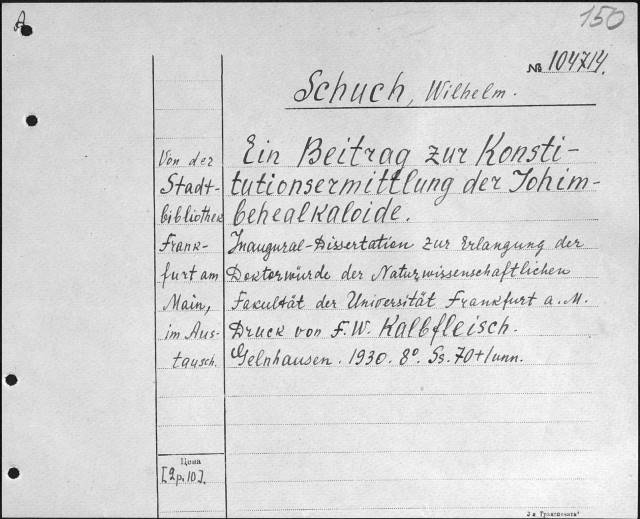 A
150
№ 104714.
Schuch, Wilhelm.
Von der
Stadt-
bibliothek
Frank-
furt am
Main,
im Aus-
tausch.
Ein Beitrag zur Konsti-
tutionsermittlung der Johim-
behealkaloide.
Inaugural-Dissertation zur Erlangung der
Doktorwürde der Naturwissenschaftlichen
Fakultät der Universität Frankfurt a. M.
Druck von F. W. Kalbfleisch.
Gelnhausen. 1930. 8º. Ss. 70+1unn.
Цена
[2р.10].